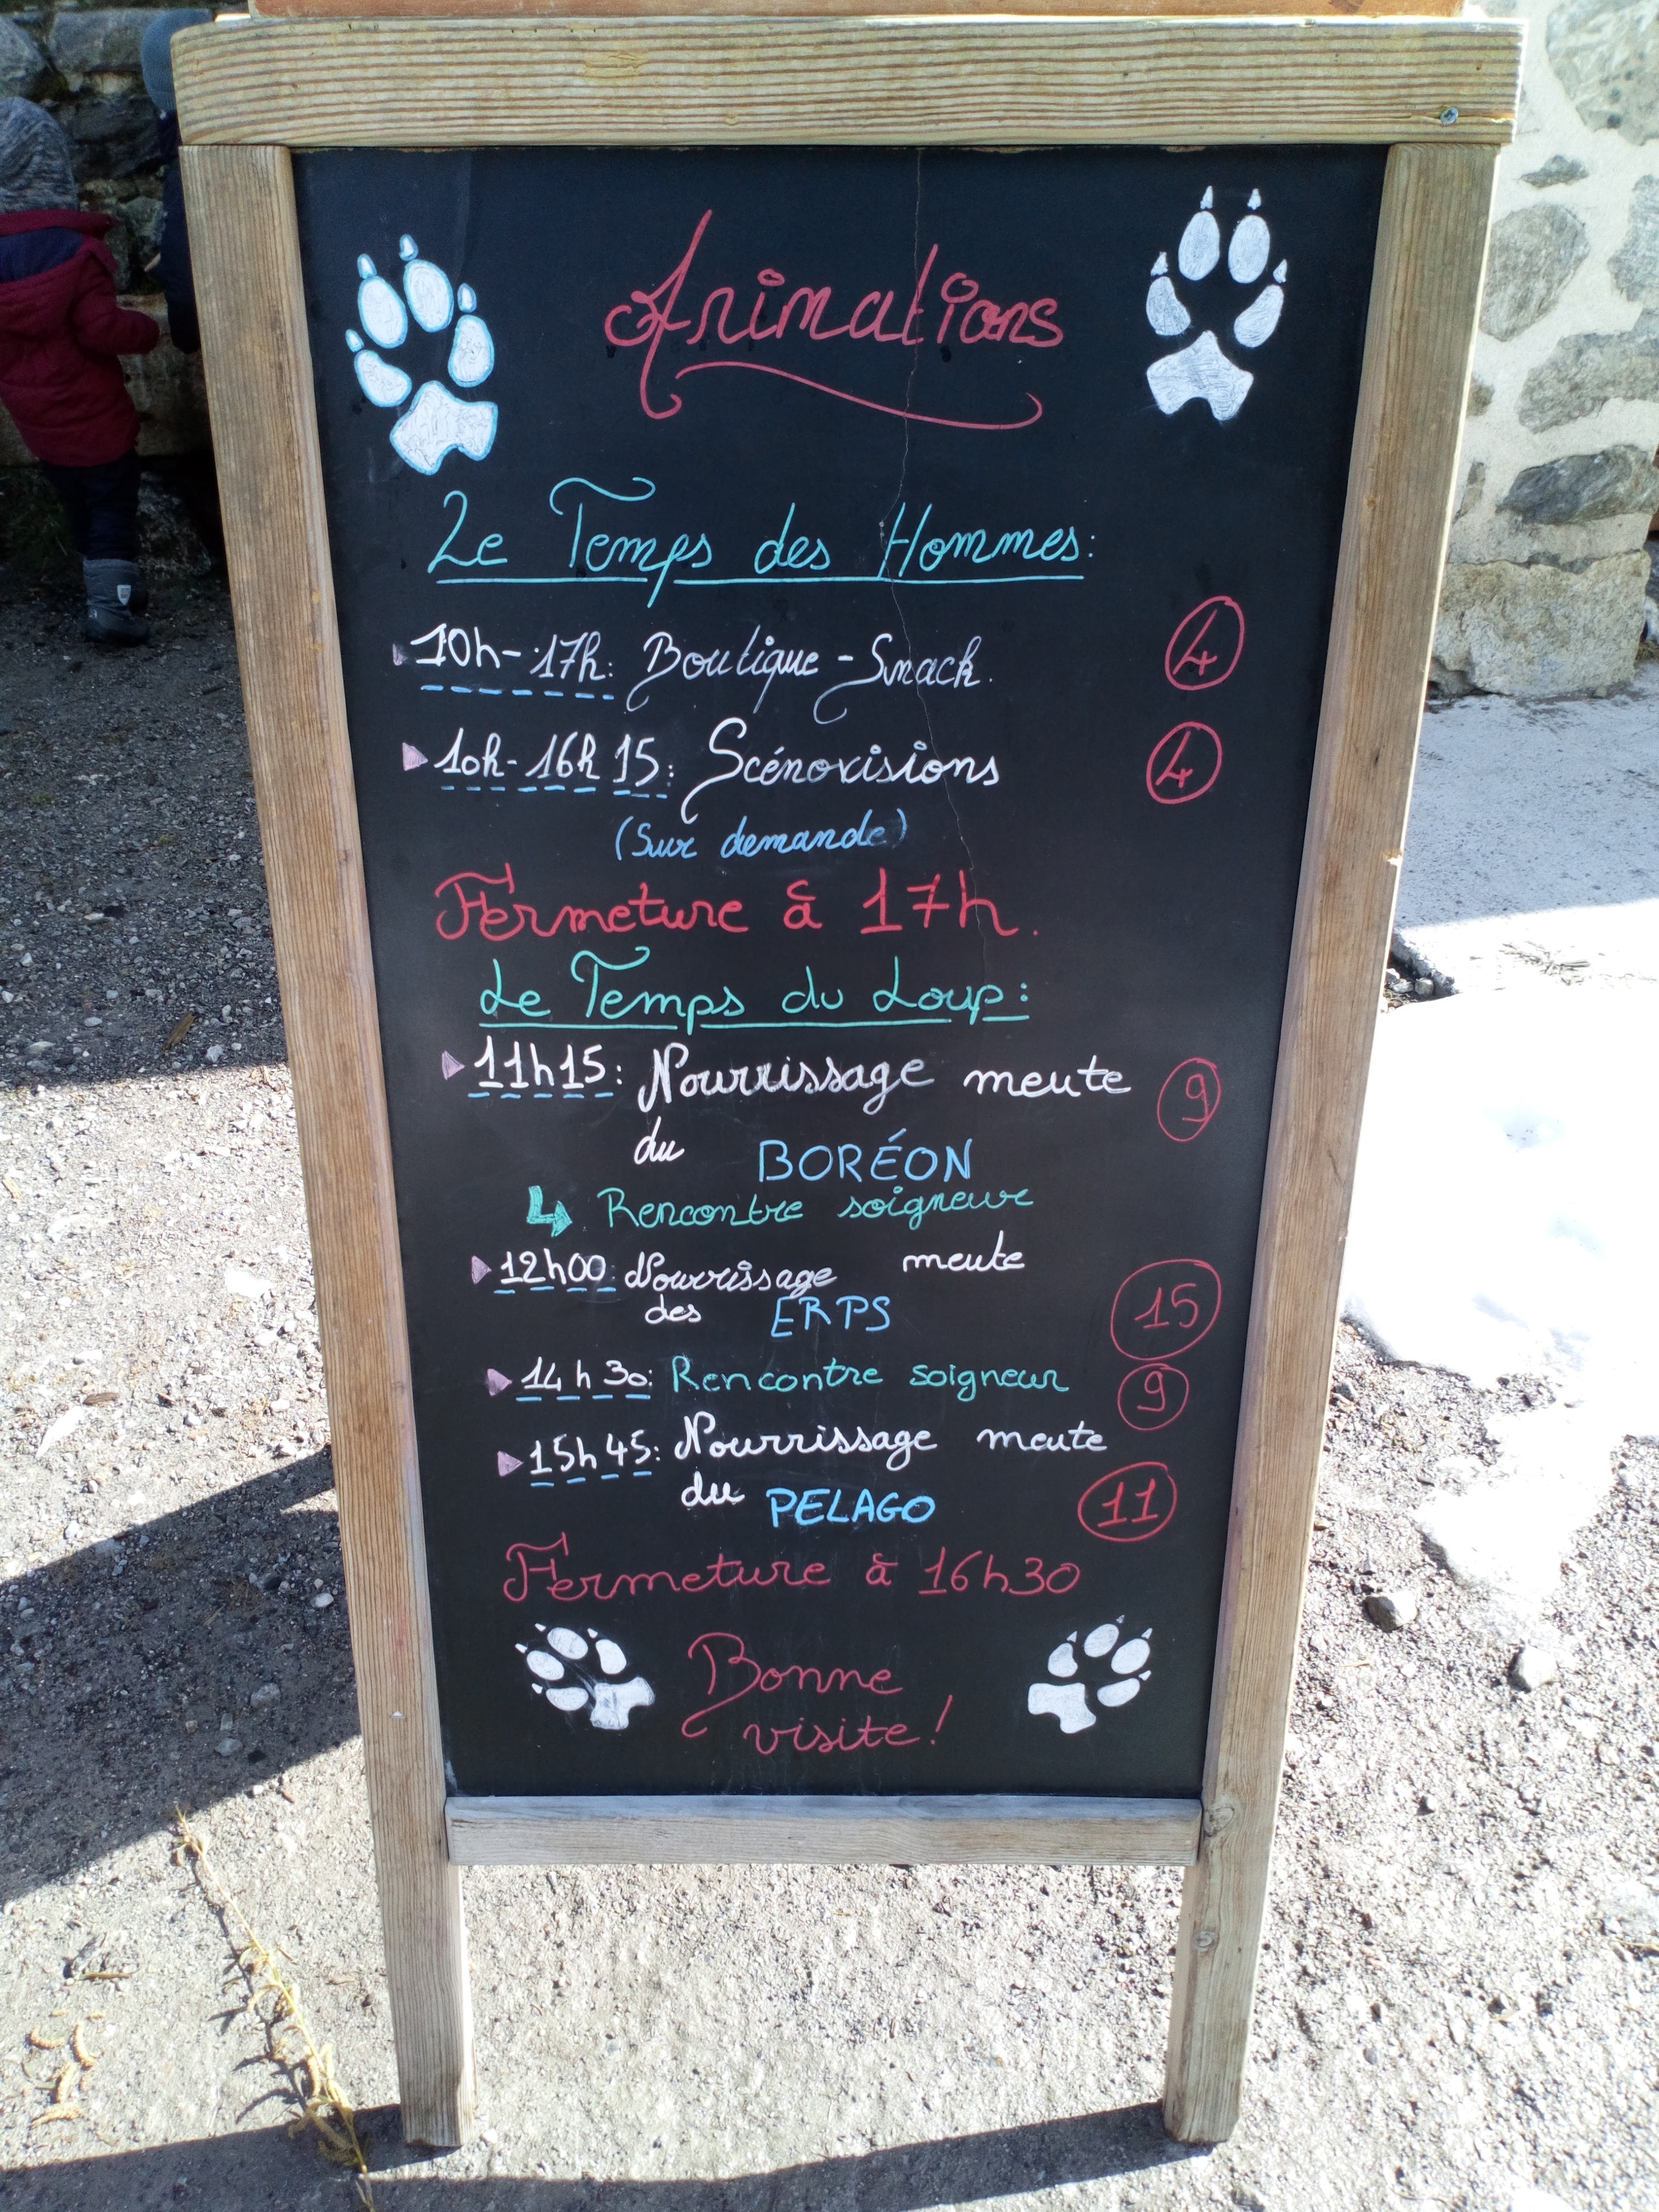 Animations
Le Temps des Hommes:
10h-17h: Boutique-Snack. 4
10h-16h15: Scénovisions 4
(Sur demande)
Fermeture à 17h.
Le Temps du Loup:
11h15: Nourrissage meute 9
du BORÉON
Rencontre soigneur
12h00: Nourrissage meute
des ERPS 15
14h30: Rencontre soigneur 9
15h45: Nourrissage meute
du PELAGO 11
Fermeture à 16h30
Bonne
visite!